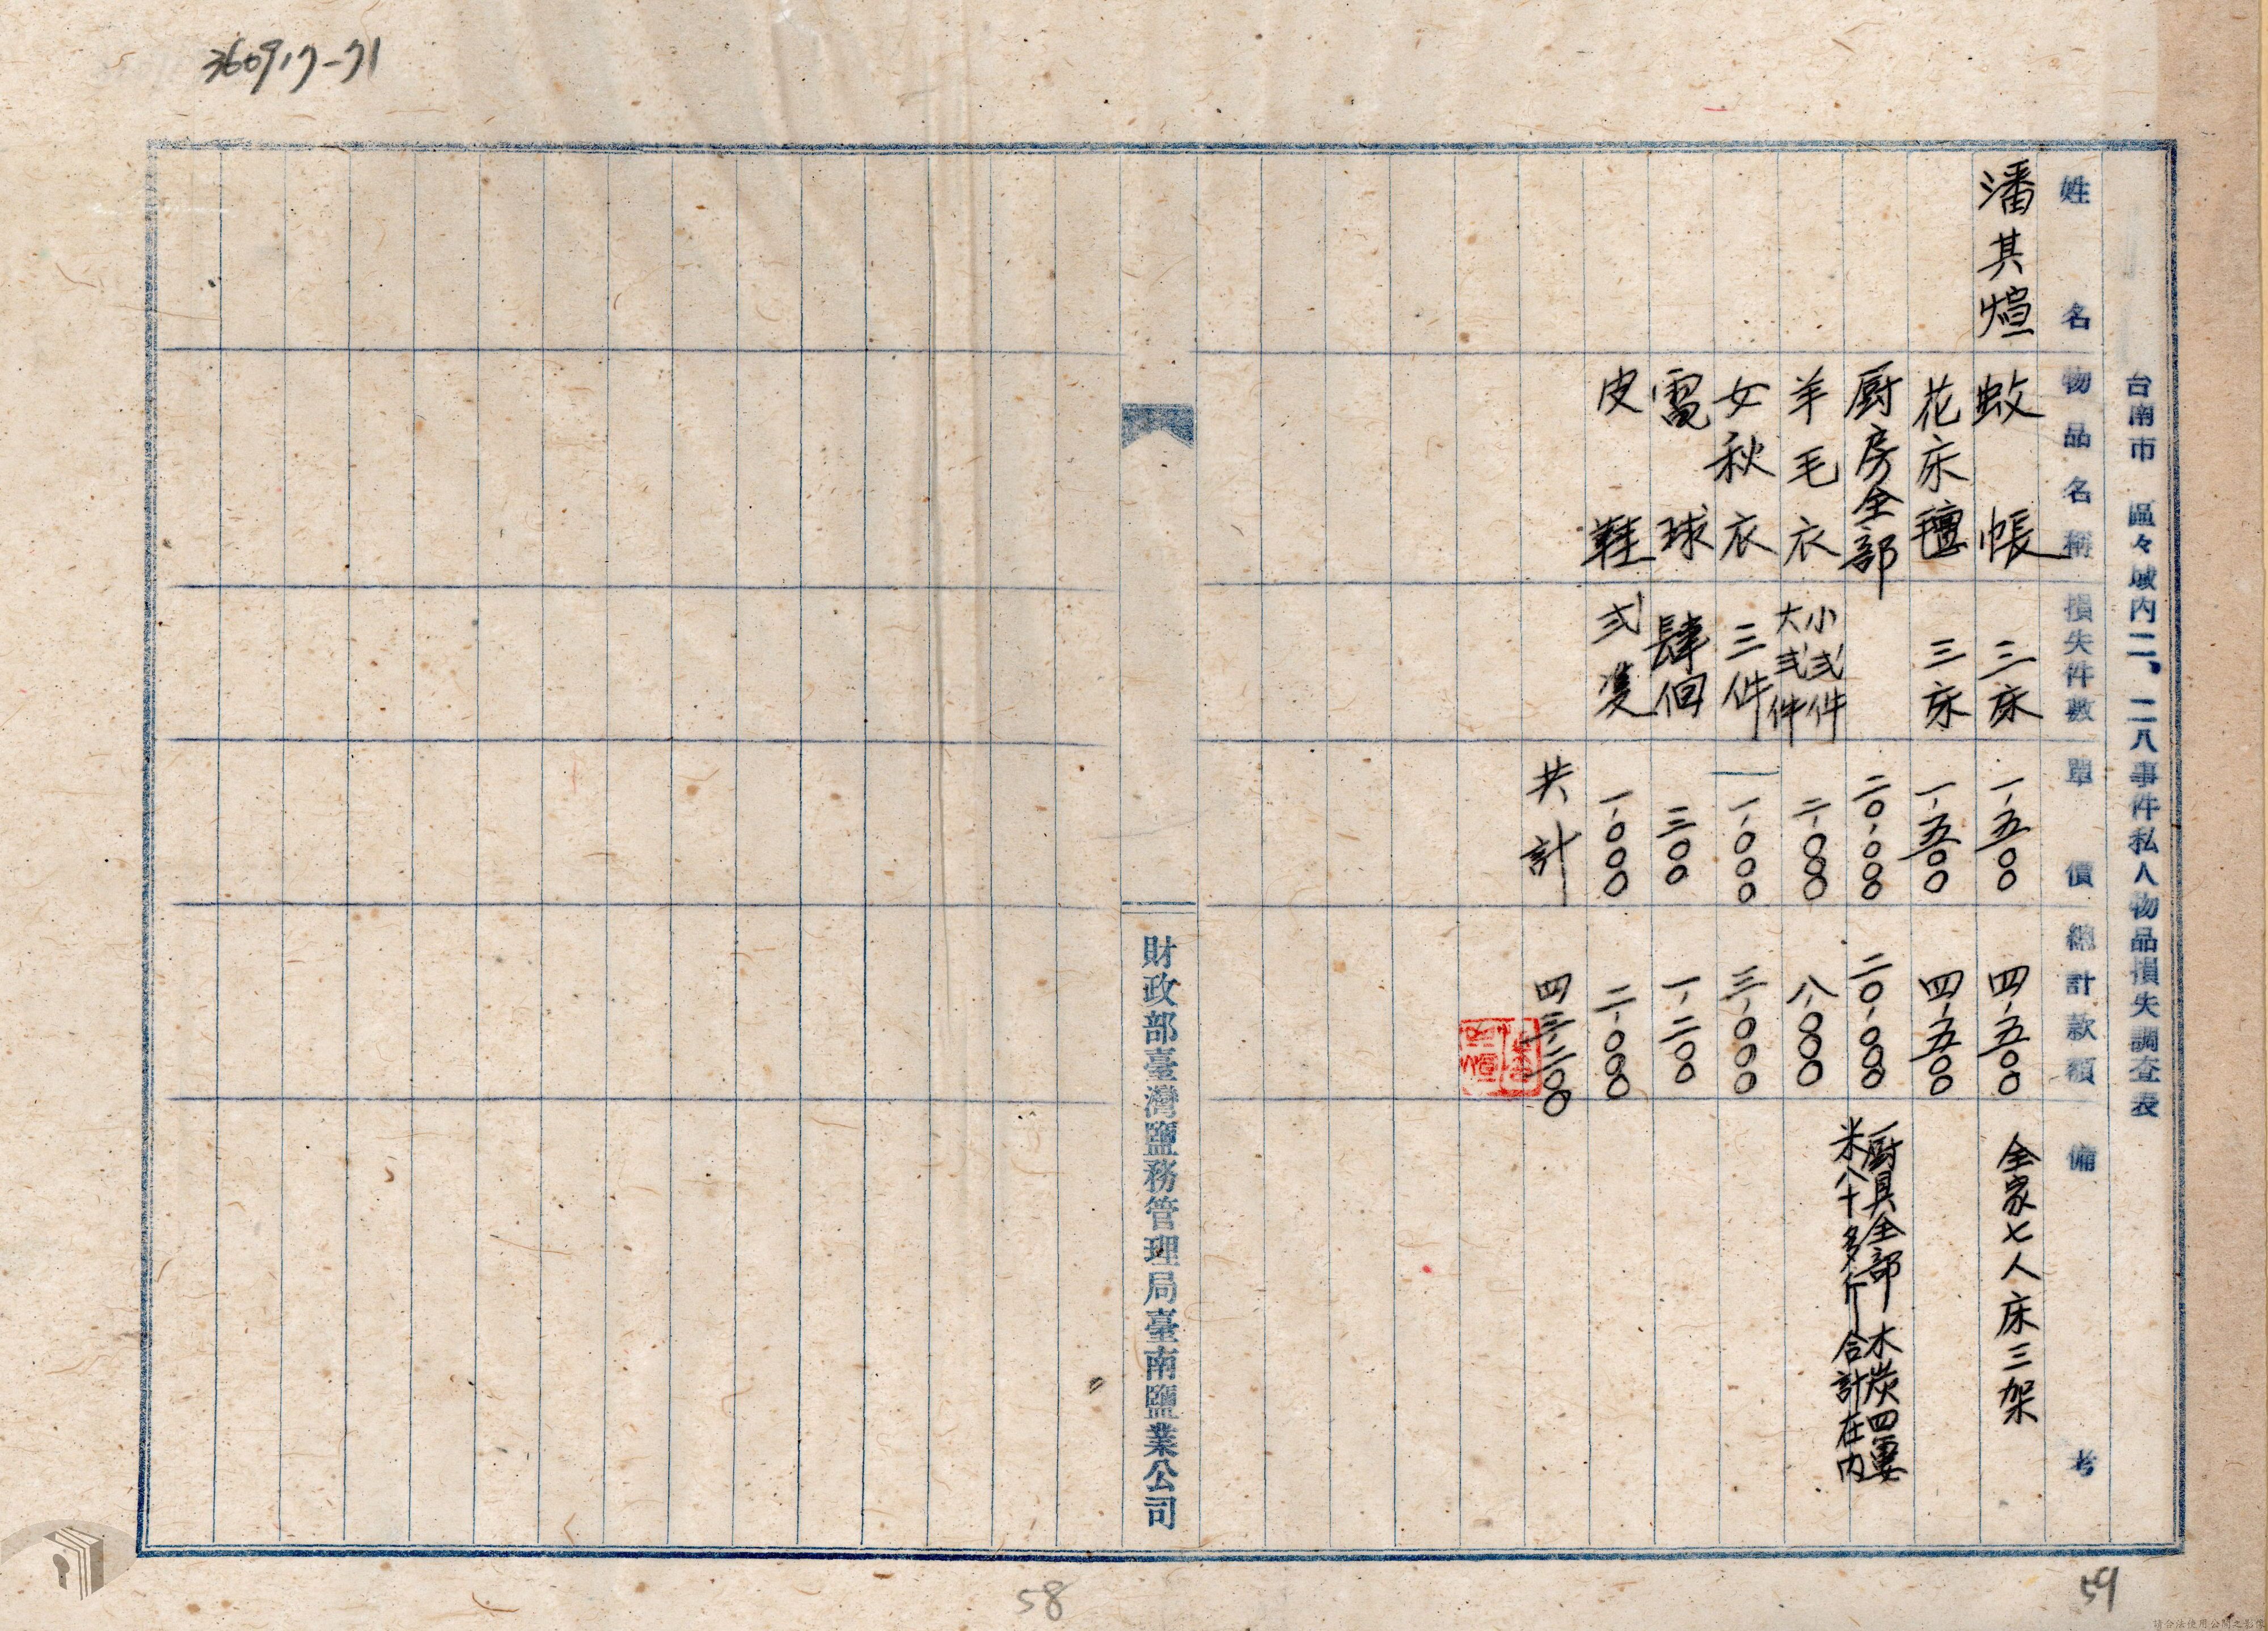 360917-71
台南市 區々域内二、二八事件私人物品損失調查表
姓名
物品名稱
損失件數
單價
總計款額
備考
潘其煊
蚊帳
三床
一、五〇〇
四、五〇〇
全家七人床三架
花床氈
三床
一、五〇〇
四、五〇〇
厨房全部
二〇、〇〇〇
二〇、〇〇〇
厨具全部 木炭四簍
米八十多斤 合計在内
羊毛衣
小弍件
大弍件
二、〇〇〇
八、〇〇〇
女秋衣
三件
一、〇〇〇
三、〇〇〇
電球
肆個
三〇〇
一、二〇〇
皮鞋
弍隻
一、〇〇〇
二、〇〇〇
共計
四三、二〇〇
財政部臺灣鹽務管理局臺南鹽業公司
58
59